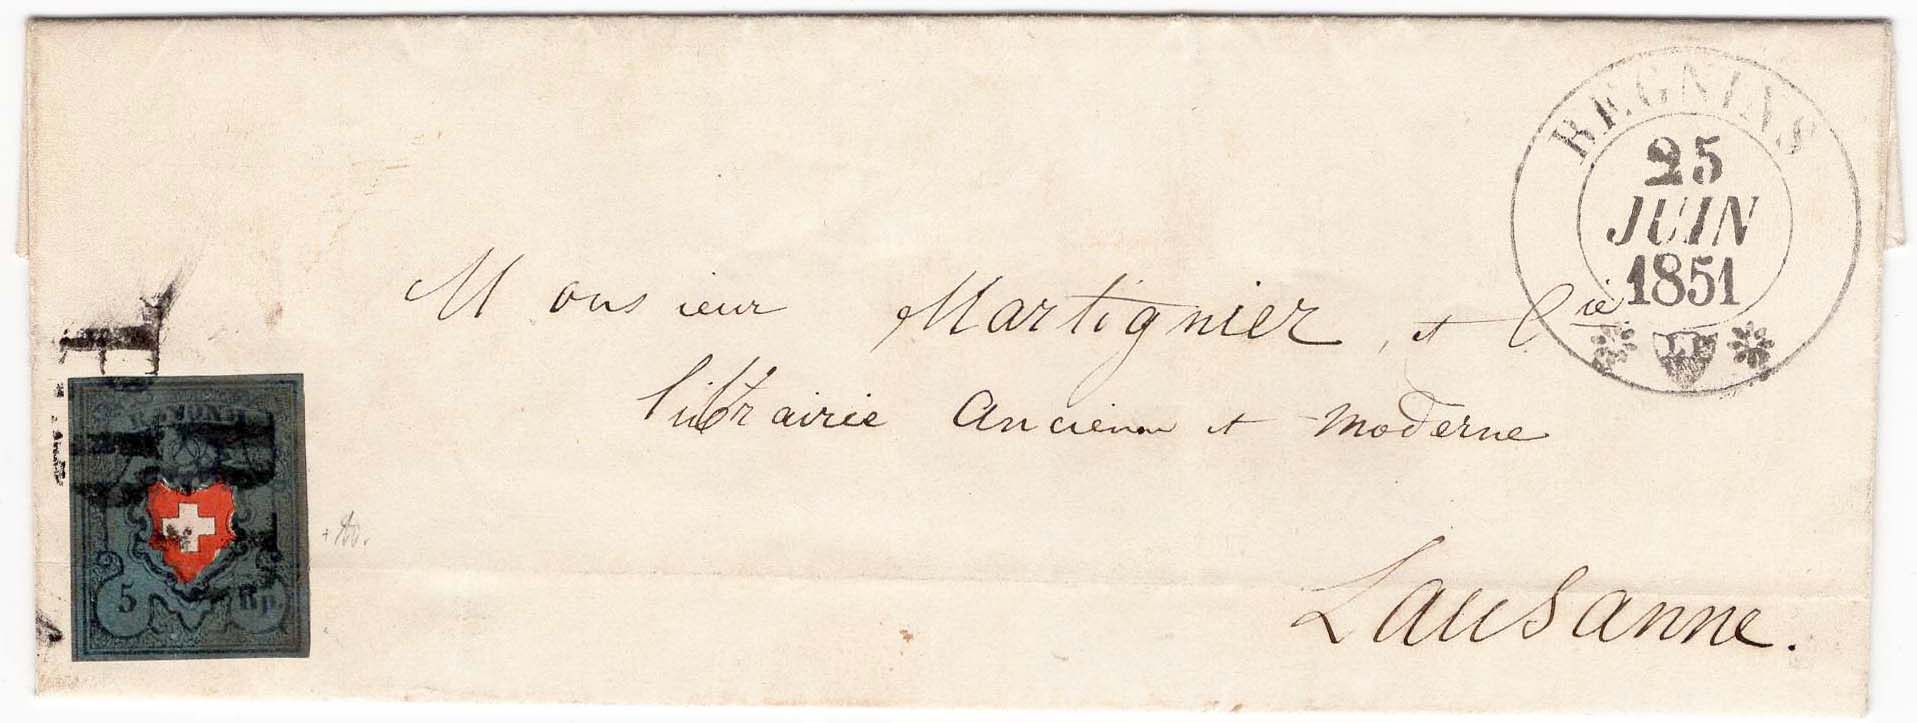 BEGNINS
25
JUIN
1851
Monsieur Martignier, et Cie
librairie Ancienne et moderne
Lausanne.
RAYON I
5 Rp.